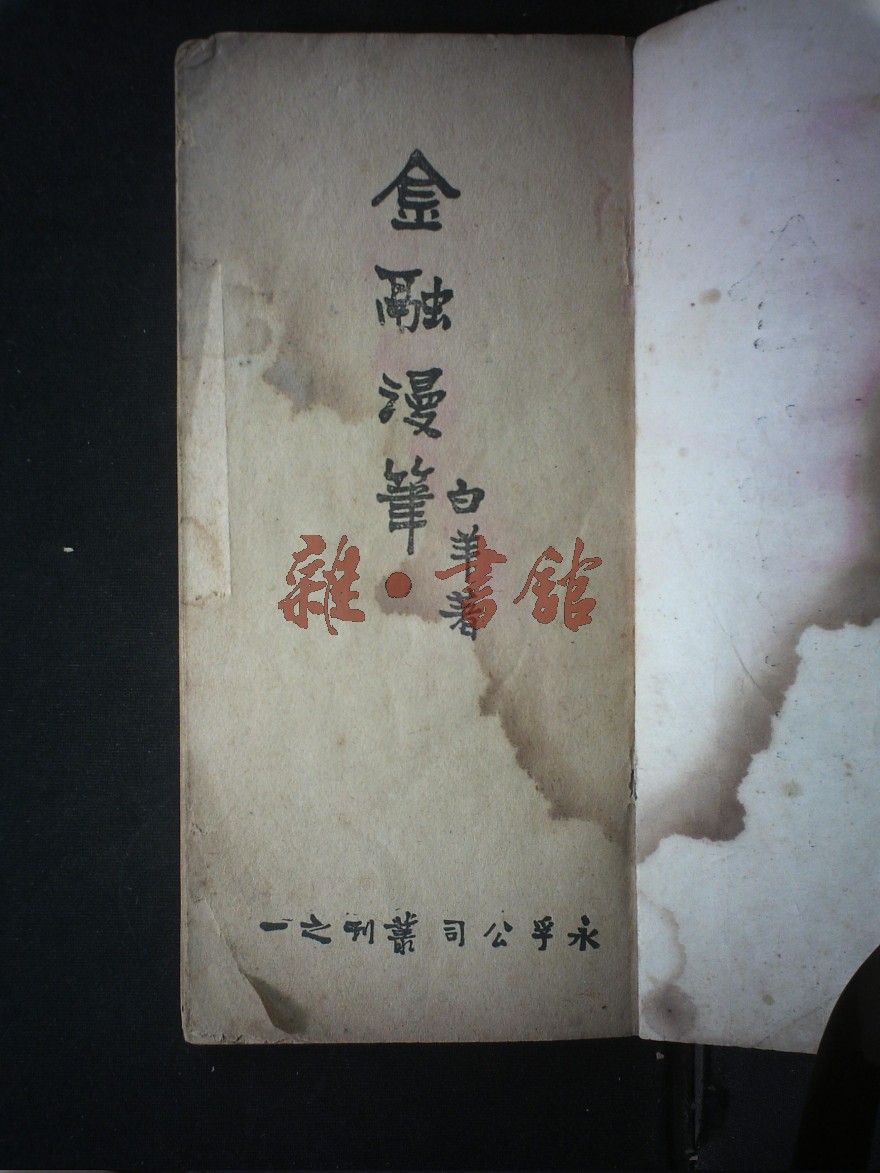 金融漫筆
白羊著
雜·書館
永孚公司叢刊之一